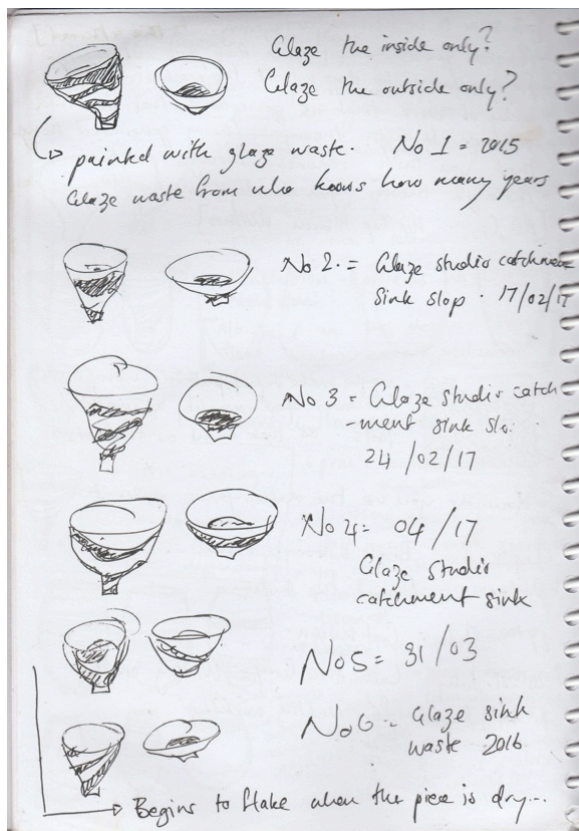 Glaze the inside only?
Glaze the outside only?
painted with glaze waste. No 1 = 2015
Glaze waste from who knows how many years
No 2. = Glaze studio catchment
sink slop. 17/02/17
No 3 = Glaze studio catch
-ment sink slo.
24/02/17
No 4 = 04/17
Glaze studio
catchment sink
No 5 = 31/03
No 6 - Glaze sink
waste 2016
Begins to flake when the piece is dry...